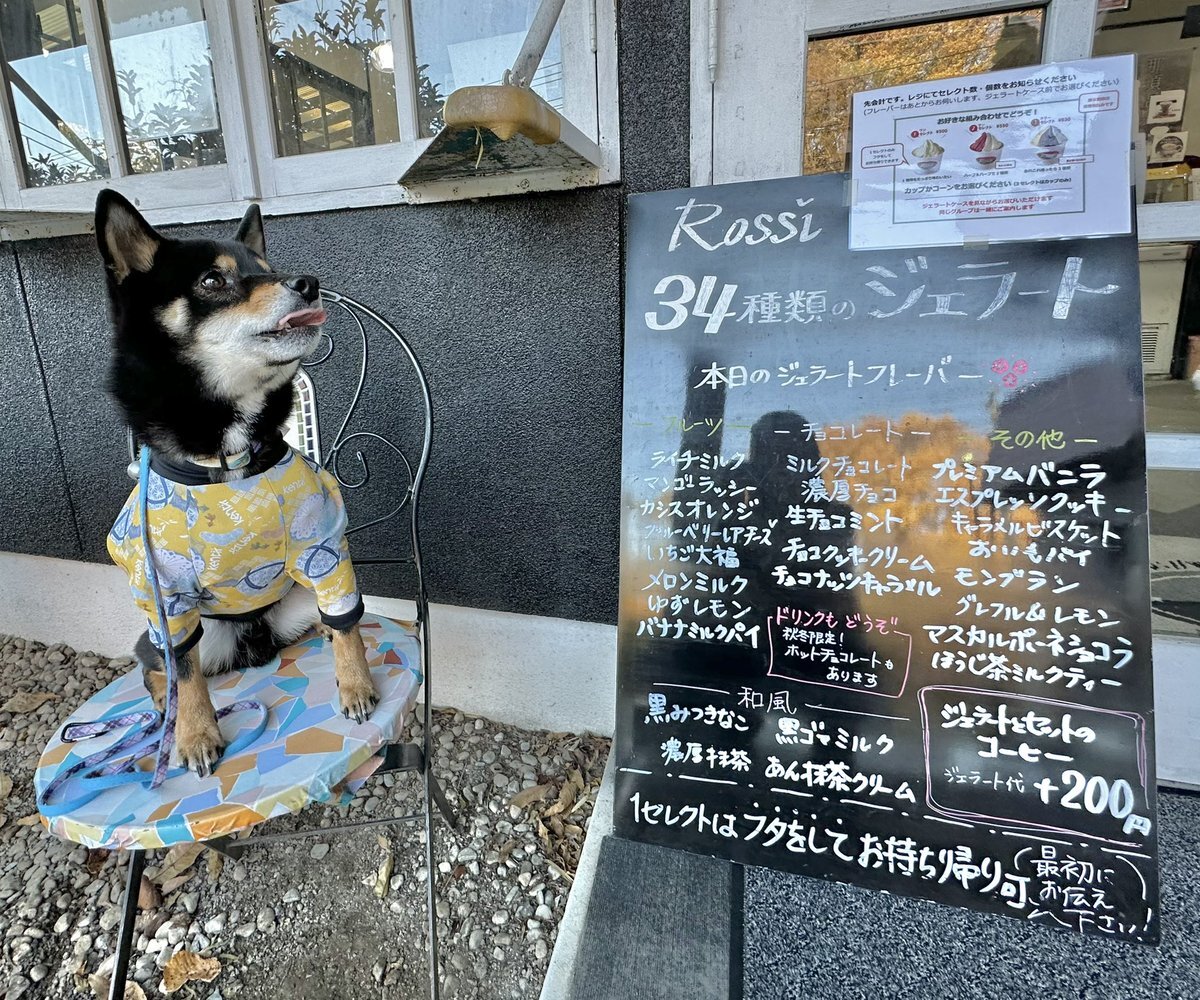 先会計です。レジにてセレクト数・個数をお知らせください
(フレーバーはあとからお伺いします、ジェラートケース前でお選びください)
お好きな組み合わせでどうぞ!
¥500
¥530
¥550
カップかコーンをお選びください
ジェラートケースを見ながらお選びいただけます
同じグループは一緒にご案内します
Rossi
34種類のジェラート
本日のジェラートフレーバー
フルーツ
ライチミルク
マンゴーラッシー
カシスオレンジ
ブルーベリーレアチーズ
いちご大福
メロンミルク
ゆずレモン
バナナミルクパイ
チョコレート
ミルクチョコレート
濃厚チョコ
生チョコミント
チョコクッキークリーム
チョコナッツキャラメル
ドリンクもどうぞ
秋冬限定!
ホットチョコレートも
あります
その他
プレミアムバニラ
エスプレッソクッキー
キャラメルビスケット
おいもパイ
モンブラン
グレフル&レモン
マスカルポーネショコラ
ほうじ茶ミルクティー
和風
黒みつきなこ
黒ゴマミルク
濃厚抹茶
あん抹茶クリーム
ジェラートとセットの
コーヒー
ジェラート代
+200円
1セレクトはフタをしてお持ち帰り可
(最初に
お伝え
下さい!)